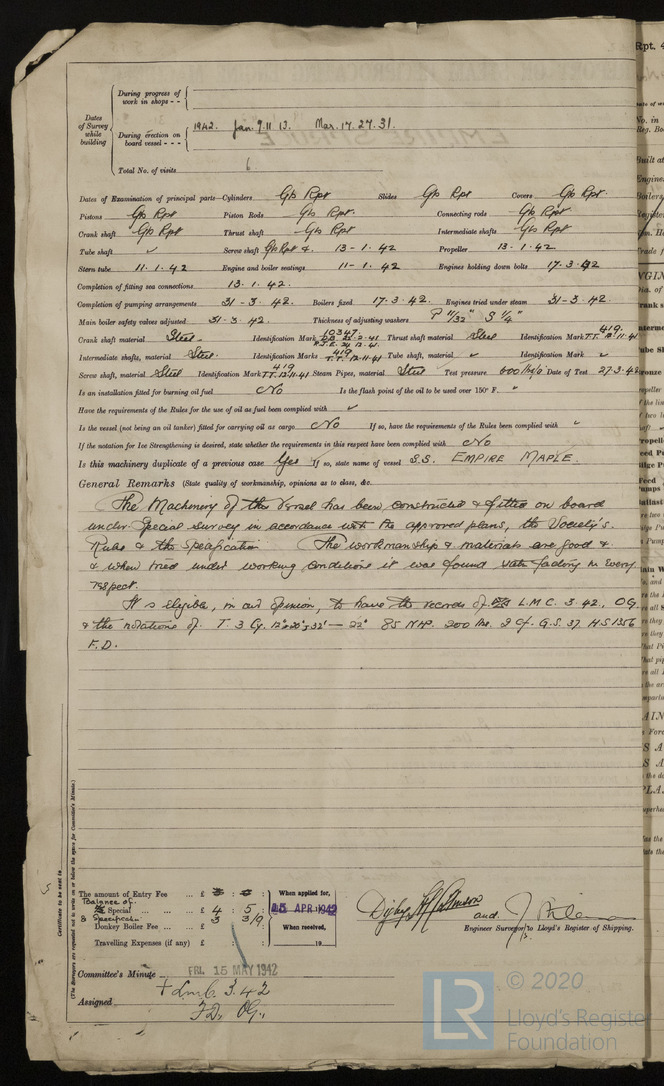 During progress of work in shops - -
Dates of Survey while building
During erection on board vessel - - - 1942. Jan 9. 11. 13. Mar. 17. 27. 31.
Total No. of visits 6
Dates of Examination of principal parts—Cylinders Gb Rpt Slides Gb Rpt Covers Gb Rpt.
Pistons Gb Rpt Piston Rods Gb Rpt. Connecting rods Gb Rpt
Crank shaft Gb Rpt Thrust shaft Gb Rpt Intermediate shafts Gb Rpt
Tube shaft ✓ Screw shaft Gb Rpt & 13-1-42 Propeller 13-1-42
Stern tube 11.1.42 Engine and boiler seatings 11-1.42 Engines holding down bolts 17.3.42
Completion of fitting sea connections 13.1.42.
Completion of pumping arrangements 31-3.42. Boilers fixed 17.3.42. Engines tried under steam 31-3.42.
Main boiler safety valves adjusted 31.3.42 Thickness of adjusting washers P 11/32" S 1/4"
Crank shaft material Steel. Identification Mark 10347. Thrust shaft material Steel Identification Mark 419. T.T. 12.11.41
Intermediate shafts, material Steel. Identification Marks 419 T.T. 12.11.41 Tube shaft, material " Identification Mark "
Screw shaft, material Steel Identification Mark 419 T.T. 12.11.41 Steam Pipes, material Steel Test pressure 600 lbs/□ Date of Test 27.3.42
Is an installation fitted for burning oil fuel No Is the flash point of the oil to be used over 150° F. "
Have the requirements of the Rules for the use of oil as fuel been complied with ✓
Is the vessel (not being an oil tanker) fitted for carrying oil as cargo No If so, have the requirements of the Rules been complied with "
If the notation for Ice Strengthening is desired, state whether the requirements in this respect have been complied with No
Is this machinery duplicate of a previous case Yes If so, state name of vessel S.S. EMPIRE MAPLE.
General Remarks (State quality of workmanship, opinions as to class, &c.
The Machinery of this Vessel has been constructed & fitted on board
under Special survey in accordance with the approved plans, the Society's
Rules & the Specification The workmanship & materials are good &
& when tried under working conditions it was found satisfactory in every
respect.
It is eligible, in our opinion, to have the records of L.M.C. 3.42, OG
& the notations of. T. 3 Cy. 12" 20" & 32" — 22" 85 NHP. 200 lbs. 2 Cf. G.S. 37 HS 1356
F.D.
Certificate to be sent to
(The Surveyors are requested not to write on or below the space for Committee's Minute.)
The amount of Entry Fee ... £ 3 : 0 : When applied for,
Balance of Special ... £ 4 : 5 : 15 APR 1942
& Specification
Donkey Boiler Fee ... £ 3 3/9 : When received,
Travelling Expenses (if any) £ : : 19
and
Engine Surveyor to Lloyd's Register of Shipping.
Committee's Minute FRI. 15 MAY 1942
+ Lmc 3.42
Assigned F.D, OG.,
© 2020
LR Lloyd's Register
Foundation
Rpt. 4